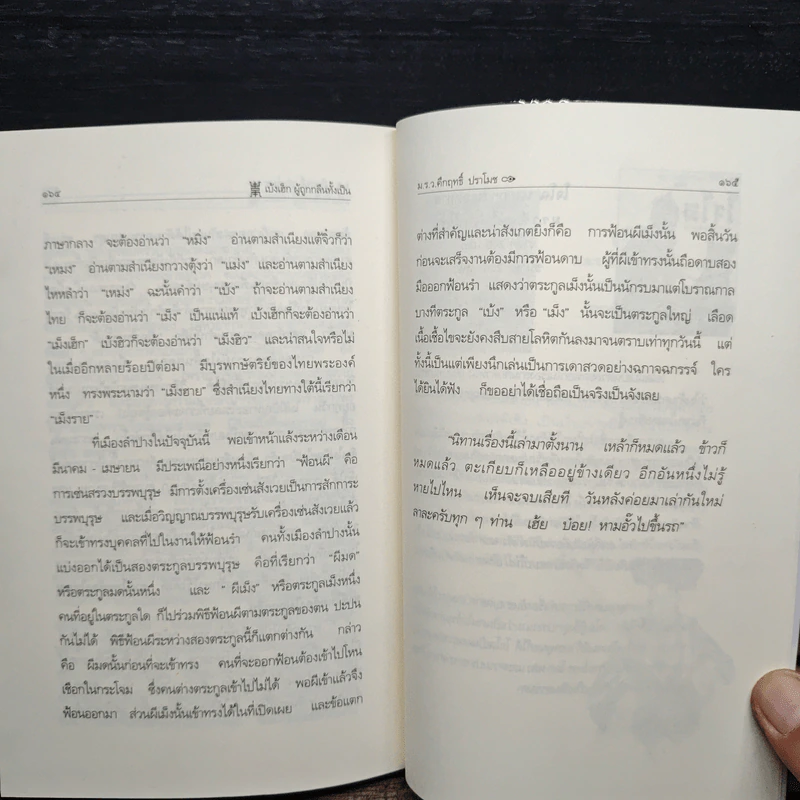 ๑๖๔ เบ้งเฮ็ก ผู้ถูกกลืนทั้งเป็น
ภาษากลาง จะต้องอ่านว่า “หมิ่ง” อ่านตามสำเนียงแต้จิ๋วก็ว่า
“เหมง” อ่านตามสำเนียงกวางตุ้งว่า “แม่ง” และอ่านตามสำเนียง
ไหหลำว่า “เหม่ง” ฉะนั้นคำว่า “เบ้ง” ถ้าจะอ่านตามสำเนียง
ไทย ก็จะต้องอ่านว่า “เม็ง” เป็นแน่แท้ เบ้งเฮ็กก็จะต้องอ่านว่า
“เม็งเฮ็ก” เบ้งฮิวก็จะต้องอ่านว่า “เม็งฮิว” และน่าสนใจหรือไม่
ในเมื่ออีกหลายร้อยปีต่อมา มีบุรพกษัตริย์ของไทยพระองค์
หนึ่ง ทรงพระนามว่า “เม็งฮาย” ซึ่งสำเนียงไทยทางใต้นี้เรียกว่า
“เม็งราย”
ที่เมืองลำปางในปัจจุบันนี้ พอเข้าหน้าแล้งระหว่างเดือน
มีนาคม - เมษายน มีประเพณีอย่างหนึ่งเรียกว่า “ฟ้อนผี” คือ
การเซ่นสรวงบรรพบุรุษ มีการตั้งเครื่องเซ่นสังเวยเป็นการสักการะ
บรรพบุรุษ และเมื่อวิญญาณบรรพบุรุษรับเครื่องเซ่นสังเวยแล้ว
ก็จะเข้าทรงบุคคลที่ไปในงานให้ฟ้อนรำ คนทั้งเมืองลำปางนั้น
แบ่งออกได้เป็นสองตระกูลบรรพบุรุษ คือที่เรียกว่า “ผีมด”
หรือตระกูลมดนั้นหนึ่ง และ “ ผีเม็ง” หรือตระกูลเม็งหนึ่ง
คนที่อยู่ในตระกูลใด ก็ไปร่วมพิธีฟ้อนผีตามตระกูลของตน ปะปน
กันไม่ได้ พิธีฟ้อนผีระหว่างสองตระกูลนี้ก็แตกต่างกัน กล่าว
คือ ผีมดนั้นก่อนที่จะเข้าทรง คนที่จะออกฟ้อนต้องเข้าไปโหน
เชือกในกระโจม ซึ่งคนต่างตระกูลเข้าไปไม่ได้ พอผีเข้าแล้วจึง
ฟ้อนออกมา ส่วนผีเม็งนั้นเข้าทรงได้ในที่เปิดเผย และข้อแตก
ม.ร.ว.คึกฤทธิ์ ปราโมช ๑๖๕
ต่างที่สำคัญและน่าสังเกตยิ่งก็คือ การฟ้อนผีเม็งนั้น พอสิ้นวัน
ก่อนจะเสร็จงานต้องมีการฟ้อนดาบ ผู้ที่ผีเข้าทรงนั้นถือดาบสอง
มือออกฟ้อนรำ แสดงว่าตระกูลเม็งนั้นเป็นนักรบมาแต่โบราณกาล
บางทีตระกูล “เบ้ง” หรือ “เม็ง” นั้นจะเป็นตระกูลใหญ่ เลือด
เนื้อเชื้อไขจะยังคงสืบสายโลหิตกันลงมาจนตราบเท่าทุกวันนี้ แต่
ทั้งนี้เป็นแต่เพียงนึกเล่นเป็นการเดาสวดอย่างฉกาจฉกรรจ์ ใคร
ได้ยินได้ฟัง ก็ขออย่าได้เชื่อถือเป็นจริงเป็นจังเลย
“นิทานเรื่องนี้เล่ามาตั้งนาน เหล้าก็หมดแล้ว ข้าวก็
หมดแล้ว ตะเกียบก็เหลืออยู่ข้างเดียว อีกอันหนึ่งไม่รู้
หายไปไหน เห็นจะจบเสียที วันหลังค่อยมาเล่ากันใหม่
ลาละครับทุก ๆ ท่าน เฮ้ย บ๋อย! หามอั๊วไปขึ้นรถ”